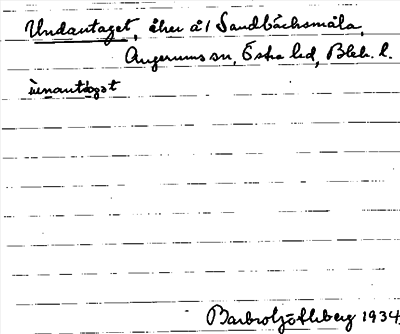 Undantaget, åker å1 Sandbäcksmåla,
Augerums sn, Östra hd, Blek. l.
Barbro Götlberg 1934